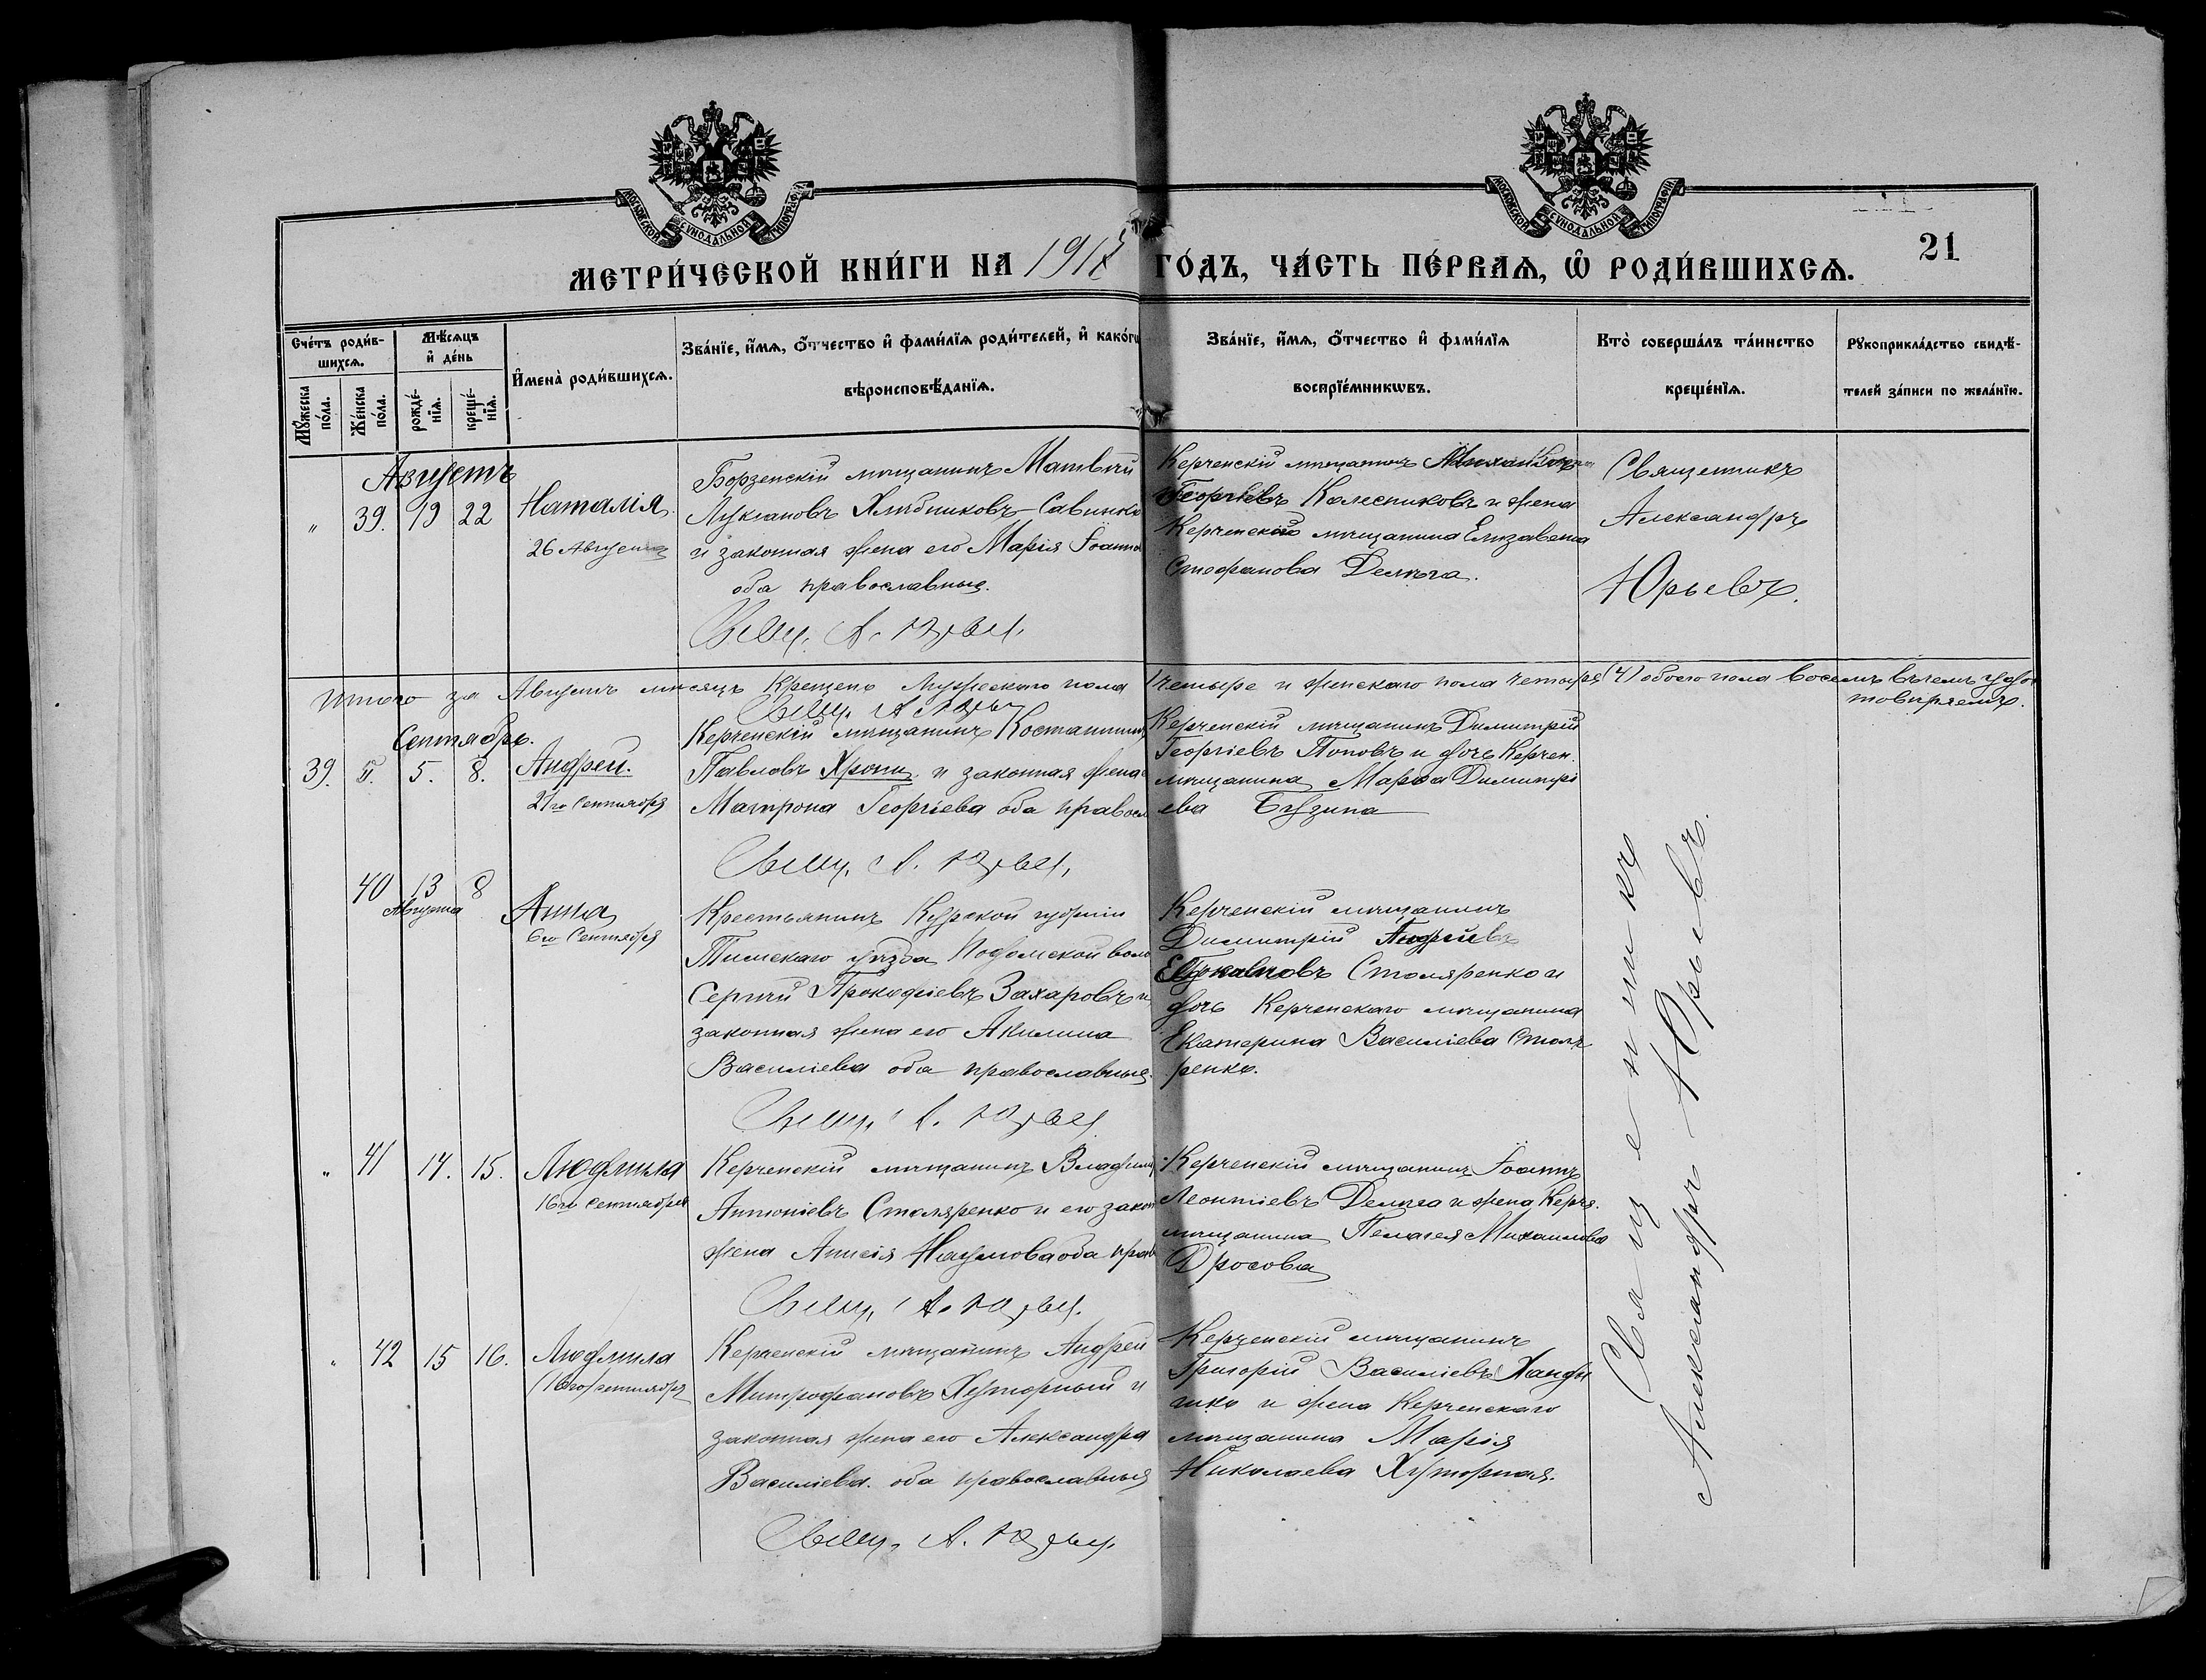 МОСКОВСКОЙ СѴНОДАЛЬНОЙ ТИПОГРАФІИ
МОСКОВСКОЙ СѴНОДАЛЬНОЙ ТИПОГРАФІИ
21
МЕТРИ́ЧЕСКОЙ КНИ́ГИ НА 1917 ГО́ДЪ, ЧА́СТЬ ПЕ́РВАѦ, Ѽ РОДИ́ВШИХСѦ.
Сче́тъ роди́в-
шихсѧ.
Мѣ́сѧцъ
и҆ де́нь
И҆мена̀ роди́вшихсѧ.
Зва́нїе, и҆́мѧ, ѻ҆́тчество и҆ фами́лїѧ роди́телей, и҆ како́гѡ
вѣроисповѣ́данїѧ.
Зва́нїе, и҆́мѧ, ѻ҆́тчество и҆ фами́лїѧ
воспрїе́мникѡвъ.
Кто̀ соверша́лъ та́инство
креще́нїѧ.
Рꙋкоприкла́дство свидѣ́-
телей за́писи по жела́нїю.
Мꙋ́жеска
по́ла.
Же́нска
по́ла.
рожде́-
нїѧ.
креще́-
нїѧ.
Августъ
" 39. 19 22
Наталія.
26 Августа
Борзенскій мѣщанинъ Матвѣй
Лукіановъ Хлѣбниковъ-Савинко
и законная жена его Марія Іоанно
оба православные.
Свящ. А. Юрьев.
Керченскій мѣщанинъ
Георгіевъ Колесниковъ и жена
Керченскаго мѣщанина Елизавета
Стефанова Делыга.
Священникъ
Александръ
Юрьевъ.
Итого за Августъ мѣсяцъ крещено мужескаго пола четыре и женскаго пола четыре (4) обоего пола восемь въ чемъ удо
товѣряемъ.
Свящ. А. Юрьев
Сентябрь.
39. 5. 8.
Андрей.
21го Сентября
Керченскій мѣщанинъ Костантинъ
Павловъ Хрони и законная жена
Матрона Георгіева оба правосл
Свящ. А. Юрьев.
Керченскій мѣщанинъ Димитрій
Георгіевъ Поповъ и дочь Керчен.
мѣщанина Марѳа Димитрі
ева Бузина
40 13 8
Августа
Анна
6го Сентября
Крестьянинъ Курской губерніи
Тимскаго уѣзда волос
Сергѣй Прокофіевъ Захаровъ и
законная жена его Акилина
Василіева оба православные.
Свящ. А. Юрьев
Керченскій мѣщанинъ
Димитрій
Столяренко и
дочь Керченскаго мѣщанина
Екатерина Василіева Столя
ренко.
" 41 14. 15.
Людмила
16го Сентября
Керченскій мѣщанинъ Владимір
Антоніевъ Столяренко и его закон
жена Анисія Наумова оба прав
Свящ. А. Юрьев.
Керченскій мѣщанинъ Іоаннъ
Леонтіевъ Делыга и жена Керч.
мѣщанина Пелагея Михаилова
Дросова
" 42 15 16.
Людмила
(16го) сентября
Керченскій мѣщанинъ Андрей
Митрофановъ Хуторный и
законная жена его Александра
Василіева. оба православныя
Свящ. А. Юрьев.
Керченскій мѣщанинъ
Григорій Василіевъ Ханды
шко и жена Керченскаго
мѣщанина Марія
Николаева Хуторная.
Священникъ
Александръ Юрьевъ.